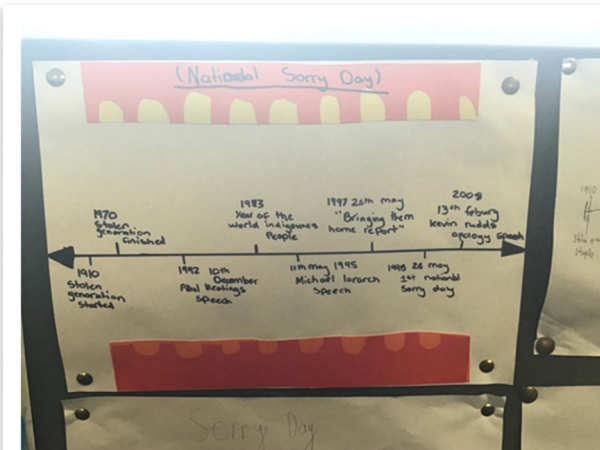 (National Sorry Day)
1970
Stolen
generation
finished
1983
Year of the
world indigenues
People
1997 26th may
"Bringing them
home report"
2008
13th febury
kevin rudds
opology speech
1910
Stolen
generation
Started
1992 10th
December
Paul Keatings
Speech
11th may 1995
Michael lavarch
Speech
1998 26 may
1st national
Sorry day
1910
Sorry Day